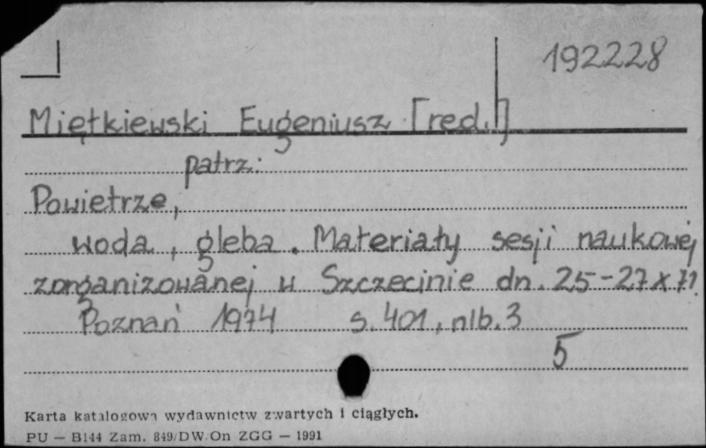 192228
Miętkiewski Eugeniusz [red.]
patrz:
Powietrze,
woda, gleba. Materiały sesji naukowej
zorganizowanej w Szczecinie dn. 25-27 X 71.
Poznań 1974 s. 401, nlb. 3
5
Karta katalogowa wydawnictw zwartych i ciągłych.
PU — B144 Zam. 849/DW/On ZGG — 1991